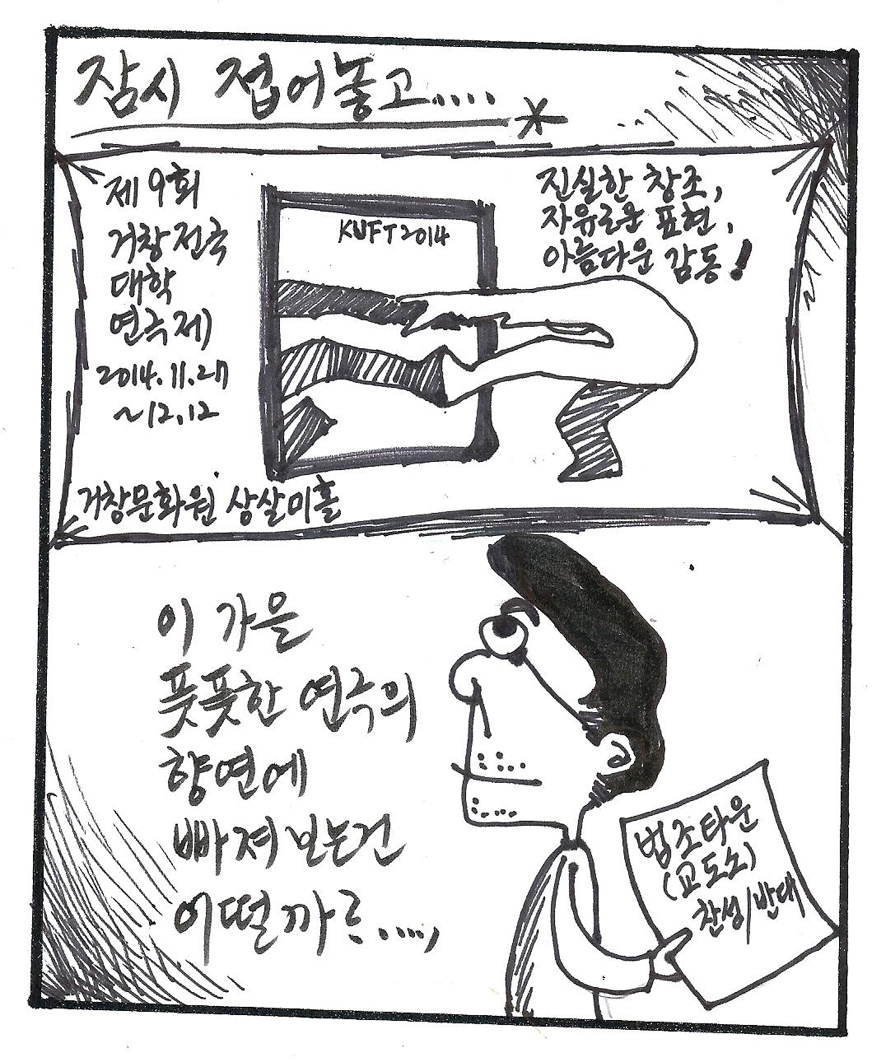 잠시 접어놓고....
제9회
거창전국
대학
연극제
2014.11.27
~12.12
KUFT2014
진실한 창조,
자유로운 표현,
아름다운 감동!
거창문화원 상살미홀
이 가을
풋풋한 연극의
향연에
빠져보는건
어떨까?.....
법조타운
(교도소)
찬성/반대